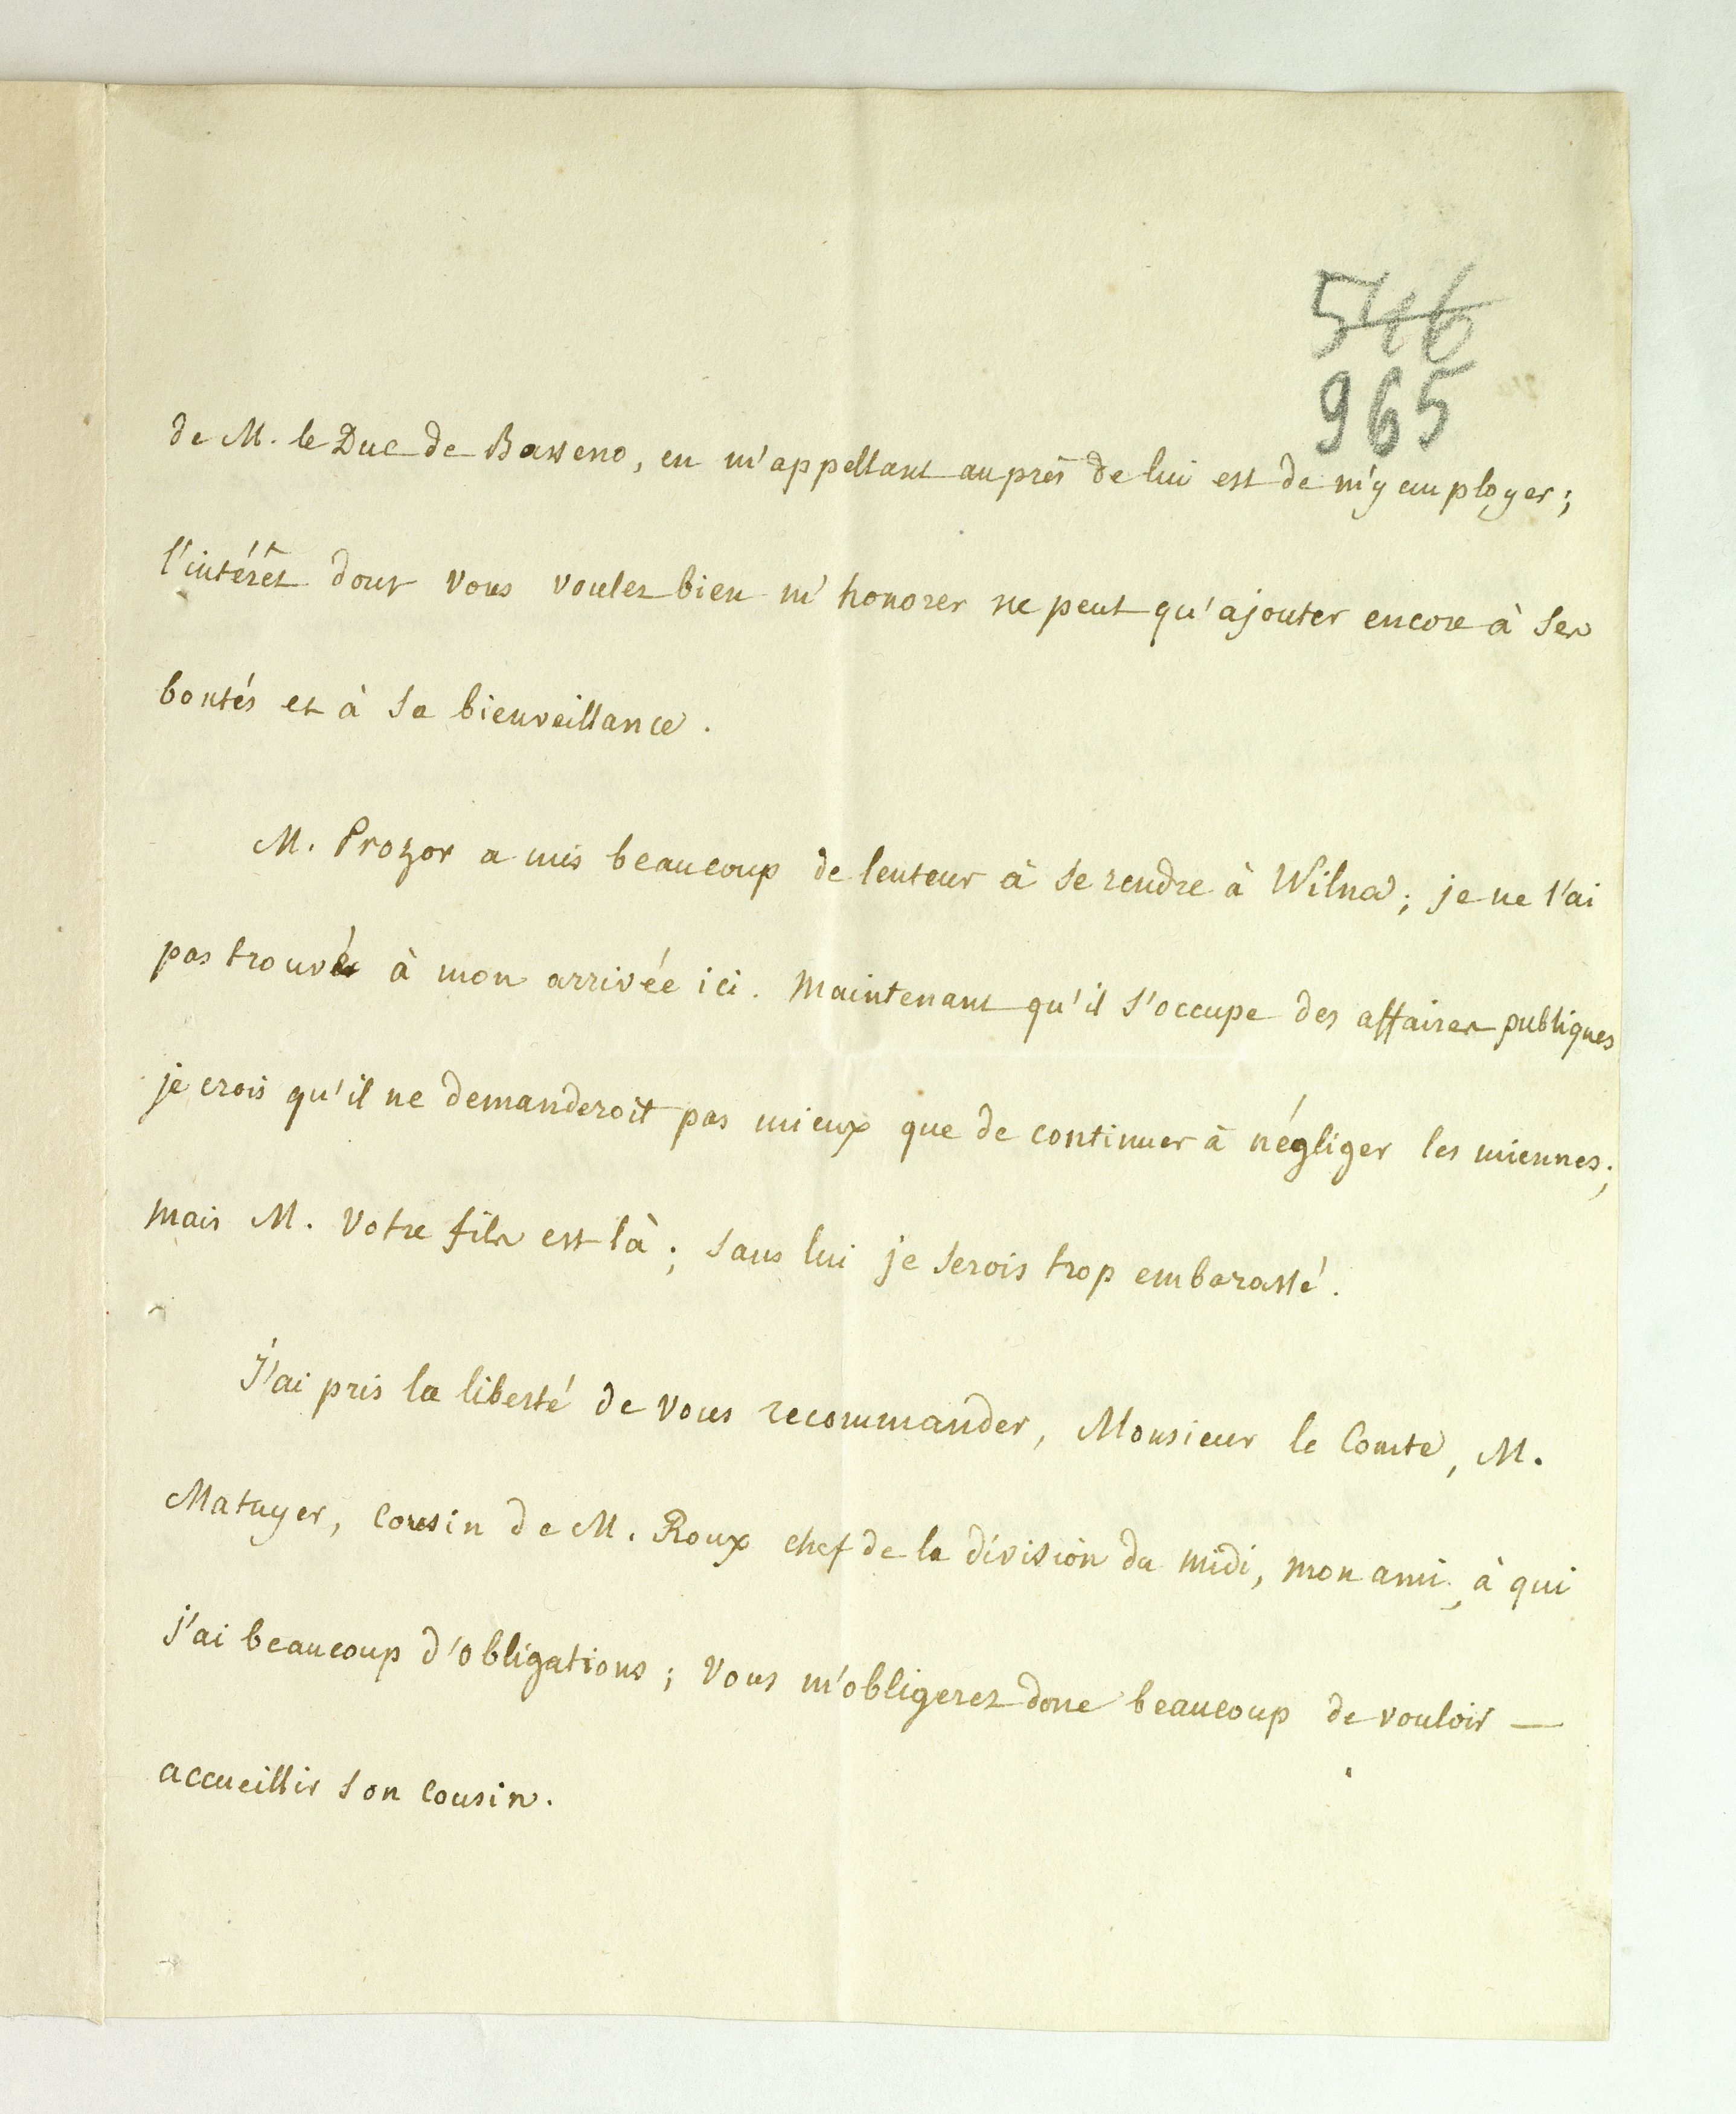 546
965
de M. le Duc de Bassano, en m'appellant auprès de lui est de m'y employer;
l'intérêt dont vous voulez bien m'honorer ne peut qu'ajouter encore à ses
bontés et à sa bienveillance.
M. Prozor a mis beaucoup de lenteur à se rendre à Wilna; je ne l'ai
pas trouvé à mon arrivée ici. Maintenant qu'il s'occupe des affaires publiques
je crois qu'il ne demanderoit pas mieux que de continuer à négliger les miennes;
mais M. votre fils est là; sans lui je serois trop embarassé.
J'ai pris la liberté de vous recommander, Monsieur le Comte, M.
Matuyer, cousin de M. Roux chef de la division du midi, mon ami, à qui
j'ai beaucoup d'obligations; vous m'obligerez donc beaucoup de vouloir —
accueillir son cousin.